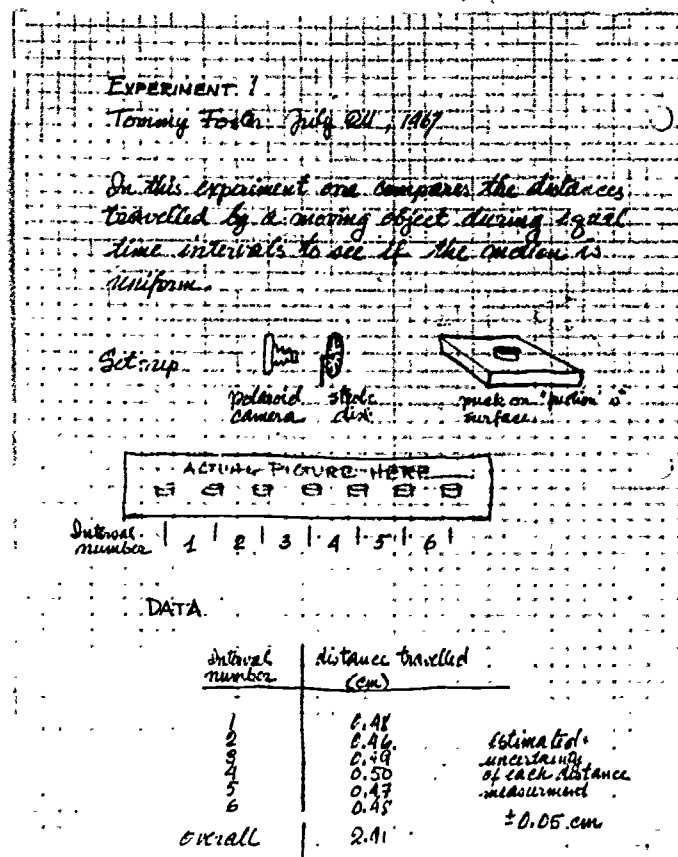 EXPERIMENT 1
Tommy Foster July 24, 1967
In this experiment one compares the distances
travelled by a moving object during equal
time intervals to see if the motion is
uniform.
Set-up
polaroid camera
strobe disk
puck on surface
ACTUAL PICTURE HERE
Interval number | 1 | 2 | 3 | 4 | 5 | 6 |
DATA
interval number | distance travelled (cm)
1 0.48
2 0.46
3 0.49
4 0.50
5 0.47
6
estimated
uncertainty
of each distance
measurment
±0.05 cm
overall